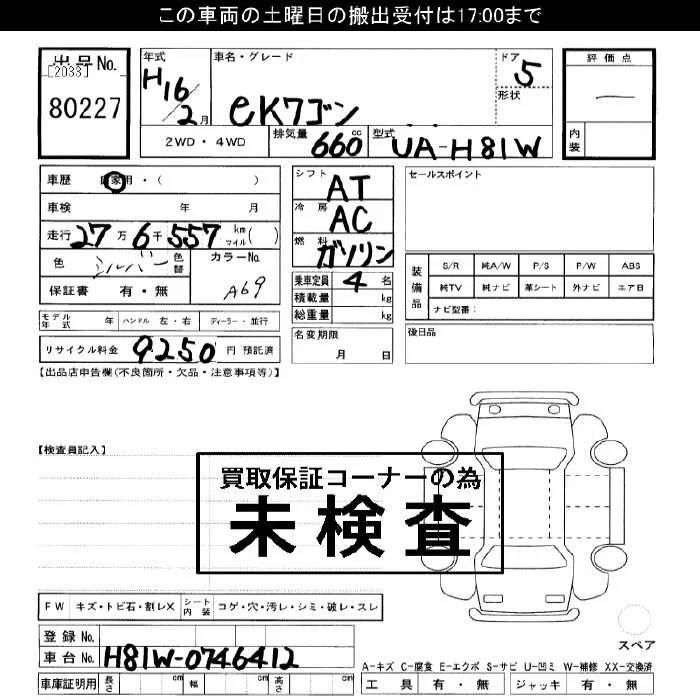 この車両の土曜日の搬出受付は17:00まで
出品No.
[2033]
80227
年式
H16/2月
車名・グレード
eKワゴン
ドア
5
形状
評価点
内装
2WD・4WD
排気量
660cc
型式
UA-H81W
車歴 自家用・( )
車検 年 月
走行 27万6千557 km マイル( )
色 シルバー 色替
カラーNo. A69
保証書 有・無
モデル年式 年 ハンドル 左・右 ディーラー・並行
リサイクル料金 9250 円 預託済
シフト AT
冷房 AC
燃料 ガソリン
乗車定員 4 名
積載量 kg
総重量 kg
名変期限
月 日
セールスポイント
装備品
S/R 純A/W P/S P/W ABS
純TV 純ナビ 革シート 外ナビ エアB
ナビ型番:
後日品
【出品店申告欄(不良箇所・欠品・注意事項等)】
【検査員記入】
買取保証コーナーの為
未検査
FW キズ・トビ石・割レX
シート内装 コゲ・穴・汚レ・シミ・破レ・スレ
登録No.
車台No. H81W-0746412
車庫証明用 長さ cm 幅 cm 高さ cm
スペア
A-キズ C-腐食 E-エクボ S-サビ U-凹ミ W-補修 XX-交換済
工具 有・無 ジャッキ 有・無